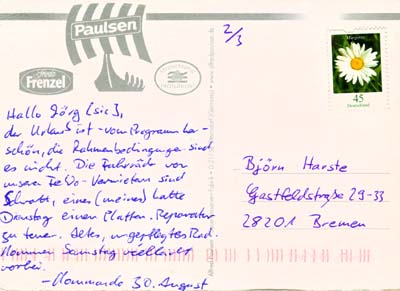 Paulsen
Frenzel
2/3
Margerite
45
Deutschland
Hallo Jörg [sic],
der Urlaub ist - vom Programm her -
schön, die Rahmenbedingungen sind
es nicht. Die Fahrräder von
unserem FeWo-Vermieter sind
Schrott, eine (meines) hatte
Dienstag einen Platten. Reparatur
zu teuer. Altes, ungepflegtes Rad.
Komme Samstag vielleicht
vorbei.
- Kommando 30. August
Björn Harste
Gastfeldstraße 29-33
28201 Bremen